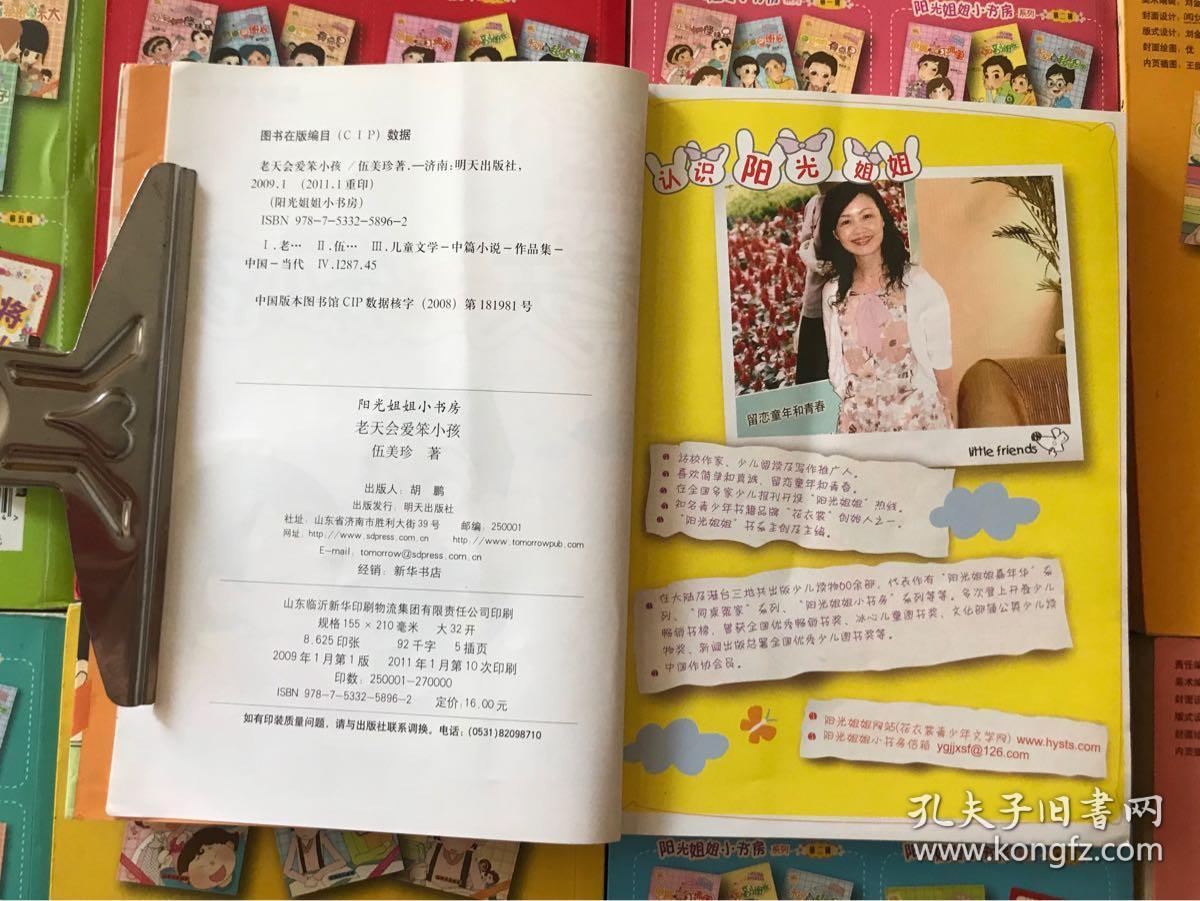 图书在版编目(CIP)数据
老天会爱笨小孩/伍美珍著.—济南:明天出版社,
2009.1 (2011.1重印)
(阳光姐姐小书房)
ISBN 978-7-5332-5896-2
Ⅰ.老… Ⅱ.伍… Ⅲ.儿童文学-中篇小说-作品集-
中国-当代 Ⅳ.I287.45
中国版本图书馆CIP数据核字(2008)第181981号
阳光姐姐小书房
老天会爱笨小孩
伍美珍 著
出版人:胡 鹏
出版发行:明天出版社
社址:山东省济南市胜利大街39号 邮编:250001
网址:http://www.sdpress.com.cn http://www.tomorrowpub.com
E-mail:tomorrow@sdpress.com.cn
经销:新华书店
山东临沂新华印刷物流集团有限责任公司印刷
规格155×210毫米 大32开
8.625印张 92千字 5插页
2009年1月第1版 2011年1月第10次印刷
印数:250001-270000
ISBN 978-7-5332-5896-2 定价:16.00元
如有印装质量问题,请与出版社联系调换。电话:(0531)82098710
认识阳光姐姐
留恋童年和青春
little friends
访校作家、少儿阅读及写作推广人。
喜欢简单和真诚,留恋童年和青春。
在全国多家少儿报刊开设“阳光姐姐”热线。
知名青少年书籍品牌“花衣裳”创始人之一。
“阳光姐姐”书系主创及主编。
在大陆及港台三地共出版少儿读物60余部,代表作有“阳光姐姐嘉年华”系
列、“同桌冤家”系列、“阳光姐姐小书房”系列等等。多次登上开卷少儿
畅销书榜,曾获全国优秀畅销书奖、冰心儿童图书奖、文化部蒲公英少儿读
物奖、新闻出版总署全国优秀少儿图书奖等。
中国作协会员。
阳光姐姐网站(花衣裳青少年文学网) www.hysts.com
阳光姐姐小书房信箱 ygjjxsf@126.com
阳光姐姐小书房系列 第二辑
第一辑
第五辑
孔夫子旧书网
www.kongfz.com